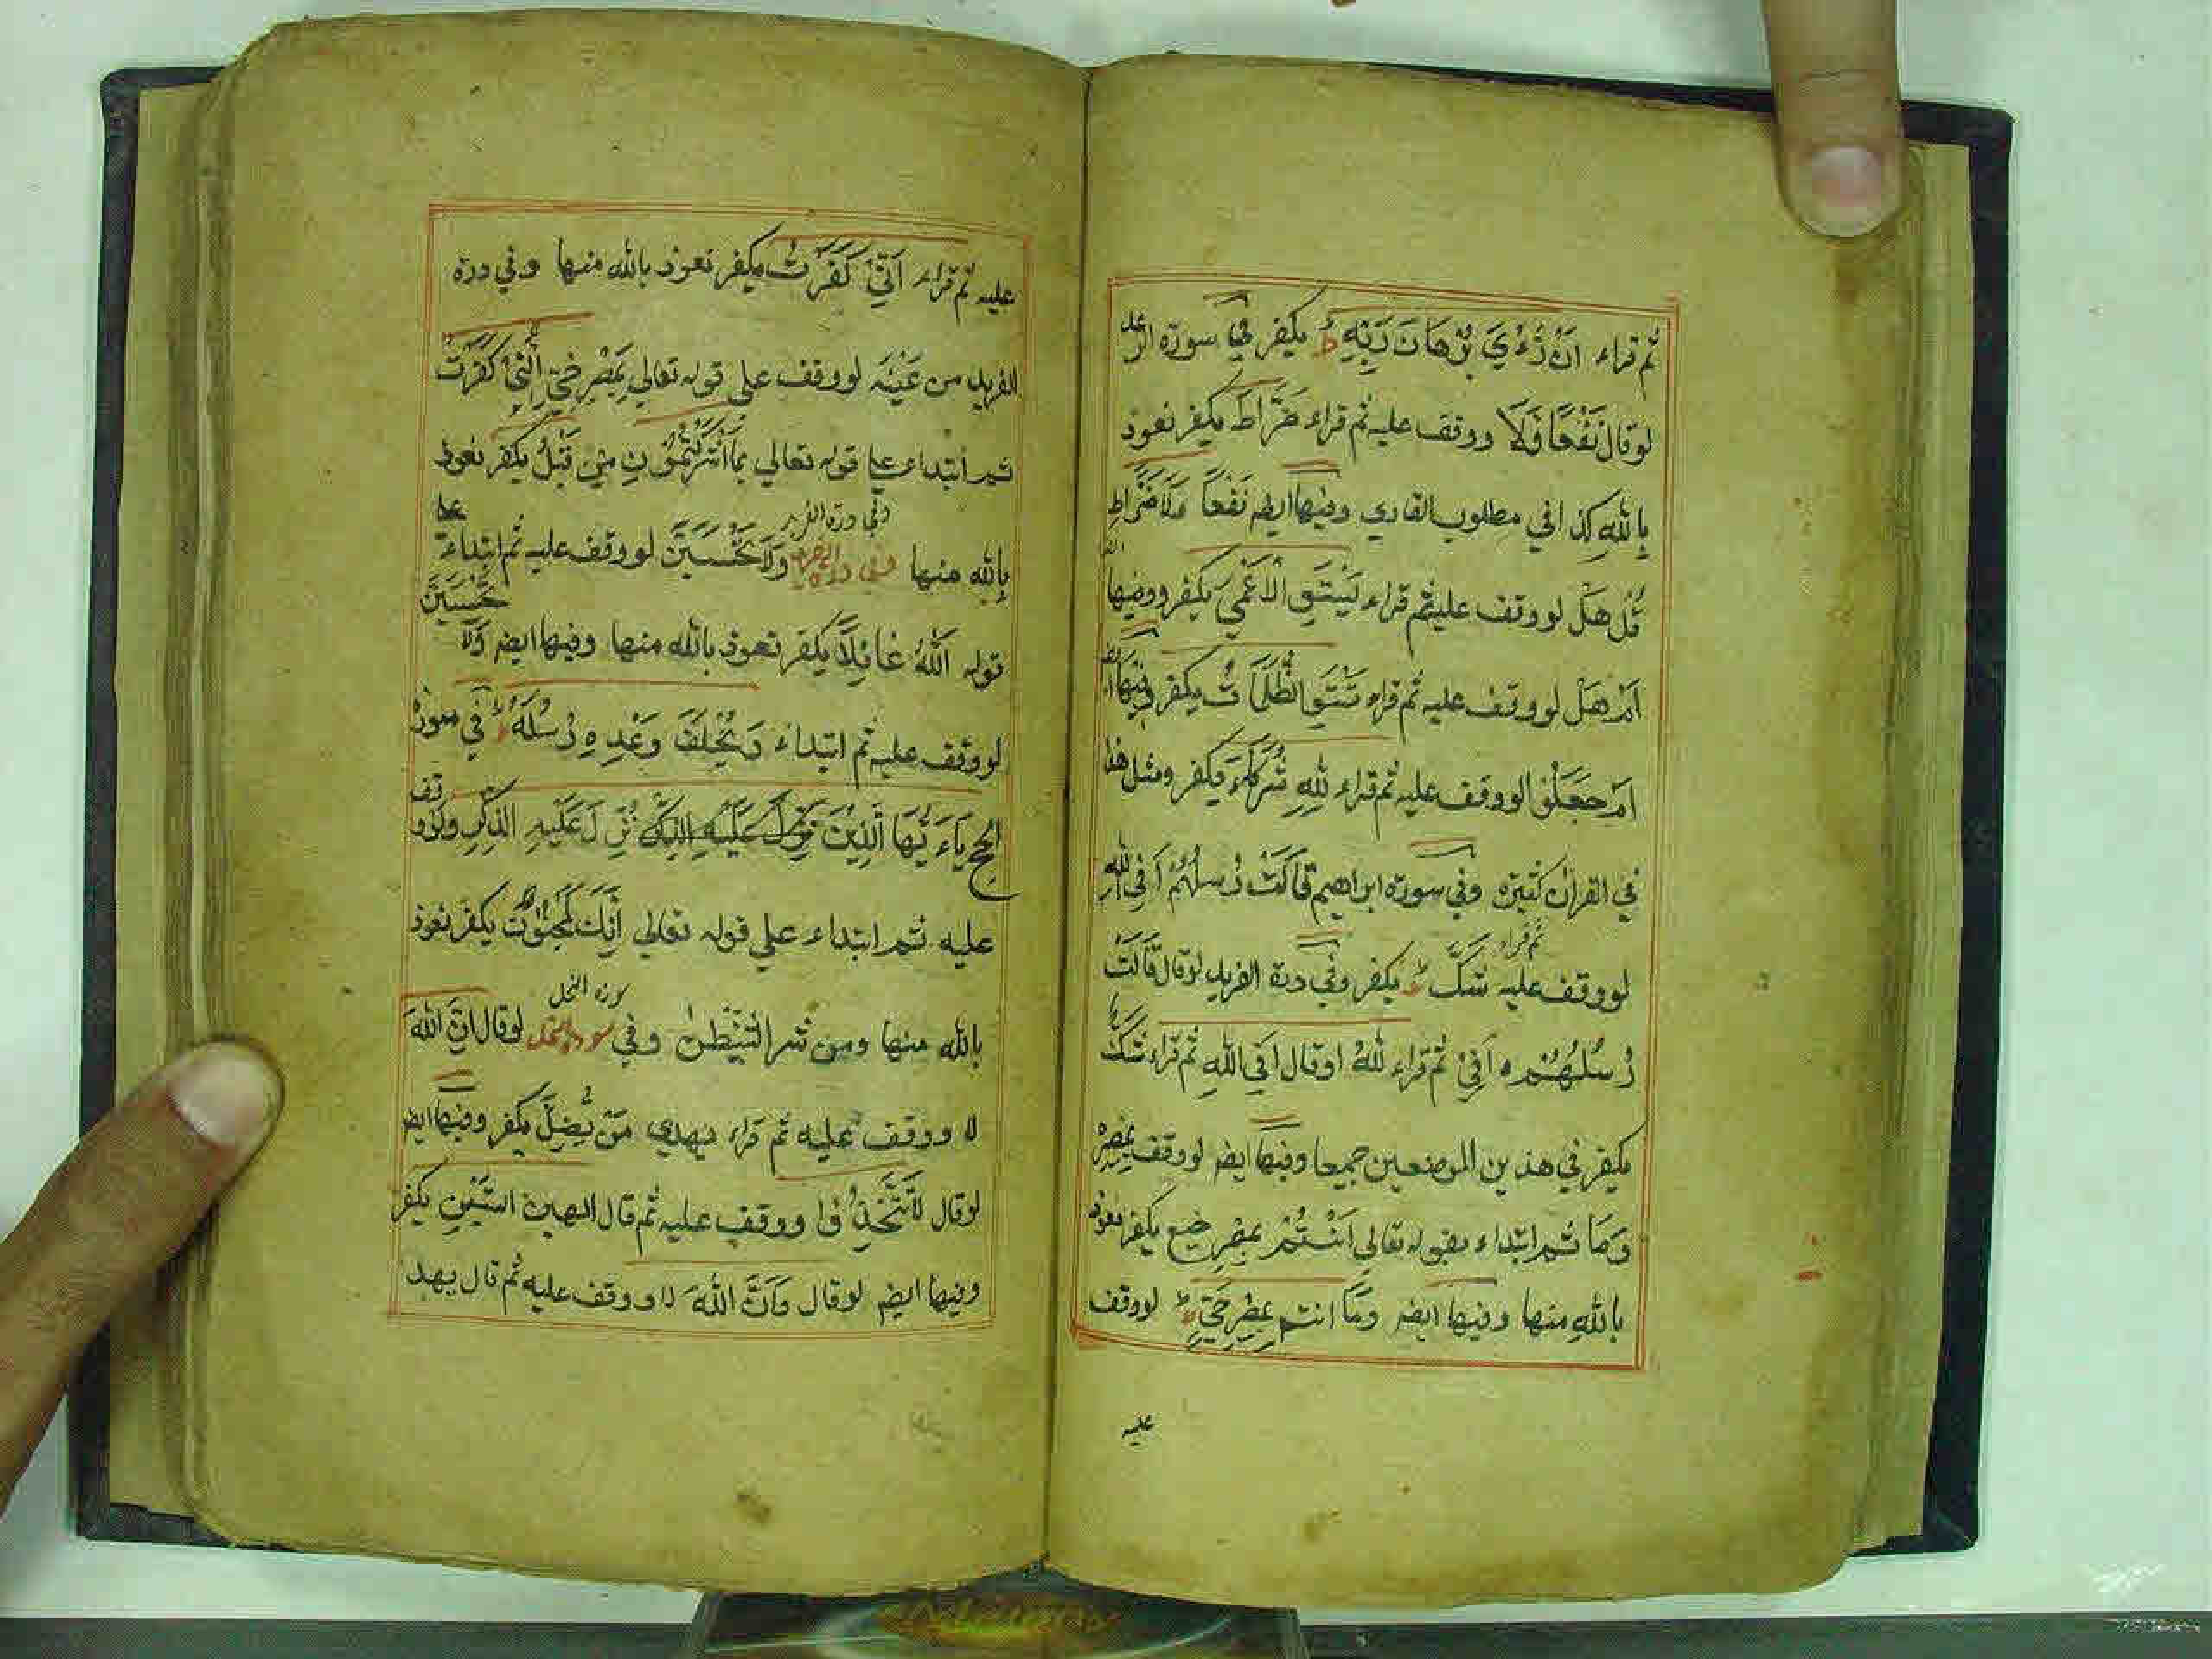 ثم قراء اَنْ رُءٰيَ بُرْهَانَ رَبِّهٖ ط يكفر فى سورة الرعد
لوقال نَفْعًا وَلَا ووقف عليه ثم قراء ضَرًّا ط يكفر نعوذ
بالله كذا في مطلوب القاري وفيها ايضم نَفْعًا وَلَا ضَرًّا ط
قُلْ هَلْ لو وقف عليه ثم قراء يَسْتَوِى الْاَعْمٰى يكفر وفيها
اَمْ هَلْ لو وقف عليه ثم قراء تَسْتَوِى الظُّلُمَاتُ يكفر وفيها
اَمْ جَعَلُوْا لو وقف عليه ثم قراء لِلّٰهِ شُرَكَاءَ يكفر ومثل هذا
في القران كثيرة وفي سورة ابراهيم قَالَتْ رُسُلُهُمْ اَفِى اللهِ
لو وقف عليه ثم قراء شَكٌّ ط يكفر وفي درة الفريد لوقال قَالَتْ
رُسُلُهُمْ ه اَفِى ثم قراء للهُ اوقال اَفِى اللهِ ثم قراء شَكٌّ
يكفر في هذين الموضعين جميعا وفيها ايضم لو وقف بِمُصْرِ
وَمَا ثم ابتداء بقوله تعالى اَنْتُمْ بِمُصْرِخِىَّ يكفر نعوذ
بالله منها وفيها ايضم وَمَا انتم بِمُصْرِخِىَّ ط لو وقف
عليه
عليه ثم قراء اِنِّى كَفَرْتُ يكفر نعوذ بالله منها وفي درة
الفريد من عَيْنِه لو وقف على قوله تعالى بِمُصْرِخِىَّ اِنِّىْ كَفَرْتُ
ثم ابتداء على قوله تعالى بِمَا اَشْرَكْتُمُوْنِ مِنْ قَبْلُ يكفر نعوذ
بالله منها وفي درة الفريد وَلَا تَحْسَبَنَّ لو وقف عليه ثم ابتداء على
قوله اللهُ غَافِلًا يكفر نعوذ بالله منها وفيها ايضم وَلَا تَحْسَبَنَّ
لو وقف عليه ثم ابتداء وَ مُخْلِفَ وَعْدِهٖ رُسُلَهٗ ط في سورة
الحجر يَاءَيُّهَا الَّذِىْ نُزِّلَ عَلَيْهِ الذِّكْرُ ولو وقف
عليه ثم ابتداء على قوله تعالى اِنَّكَ لَمَجْنُوْنٌ يكفر نعوذ
بالله منها ومن شر الشيطن وفي سورة النحل لوقال اِنَّ اللهَ
لا ووقف عليه ثم قراء يهدى مَنْ يُّضِلُّ يكفر وفيها ايضم
لوقال لَا تَتَّخِذُوْا ووقف عليه ثم قال الهين اثنين يكفر
وفيها ايضم لوقال وَاَنَّ اللهَ لا ووقف عليه ثم قال يهد